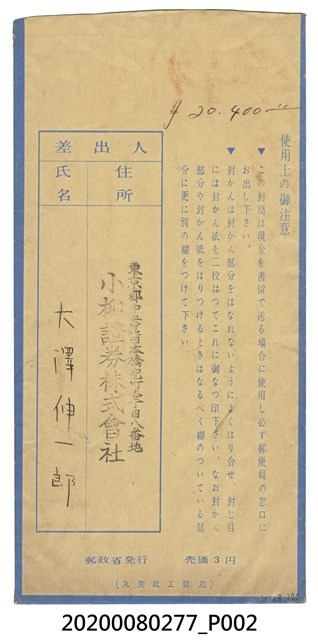 ¥ 20.400
使用上の御注意
▼この封筒は現金を書留で送る場合に使用し必ず郵便局の窓口に
お出し下さい。
▼封かんは封かん部分をはなれないようによくはり合せ、封じ目
には封かん紙を二枚はつてこれに御なつ印下さい。なお封かん
部分や封かん紙をはりつけるときはなるべく糊のついている部
分に更に別の糊をつけて下さい
差出人
住所
氏名
東京都中央區日本橋 丁目八番地
小柳證券株式會社
大澤伸一郎
郵政省発行 売価3円
20200080277_P002